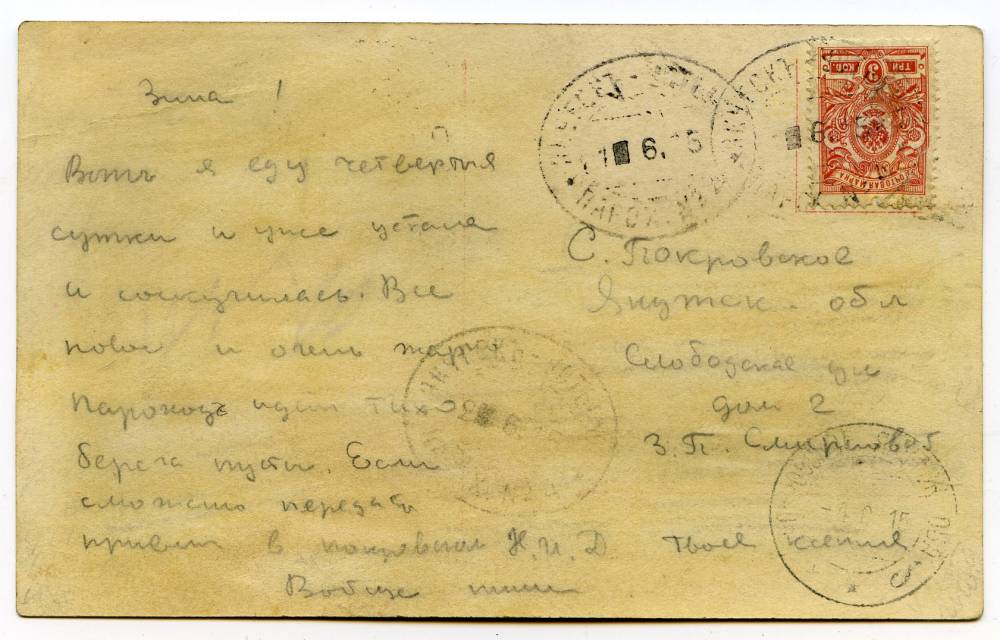 Зина!
Вотъ я еду четвертыя
сутки и уже устала
и соскучилась. Все
новое и очень жарко
Пароходъ идет тихо
берега пусты. Если
сможешь передай
привет в покровском Н.И.Д твоя ксения
Вобще пиши
С. Покровское
Якутск. обл
Слободская ул
дом 2
З. П. Смирновой
ТРИ 3 КОП.
ПОЧТОВАЯ МАРКА
6. 15
6. 15